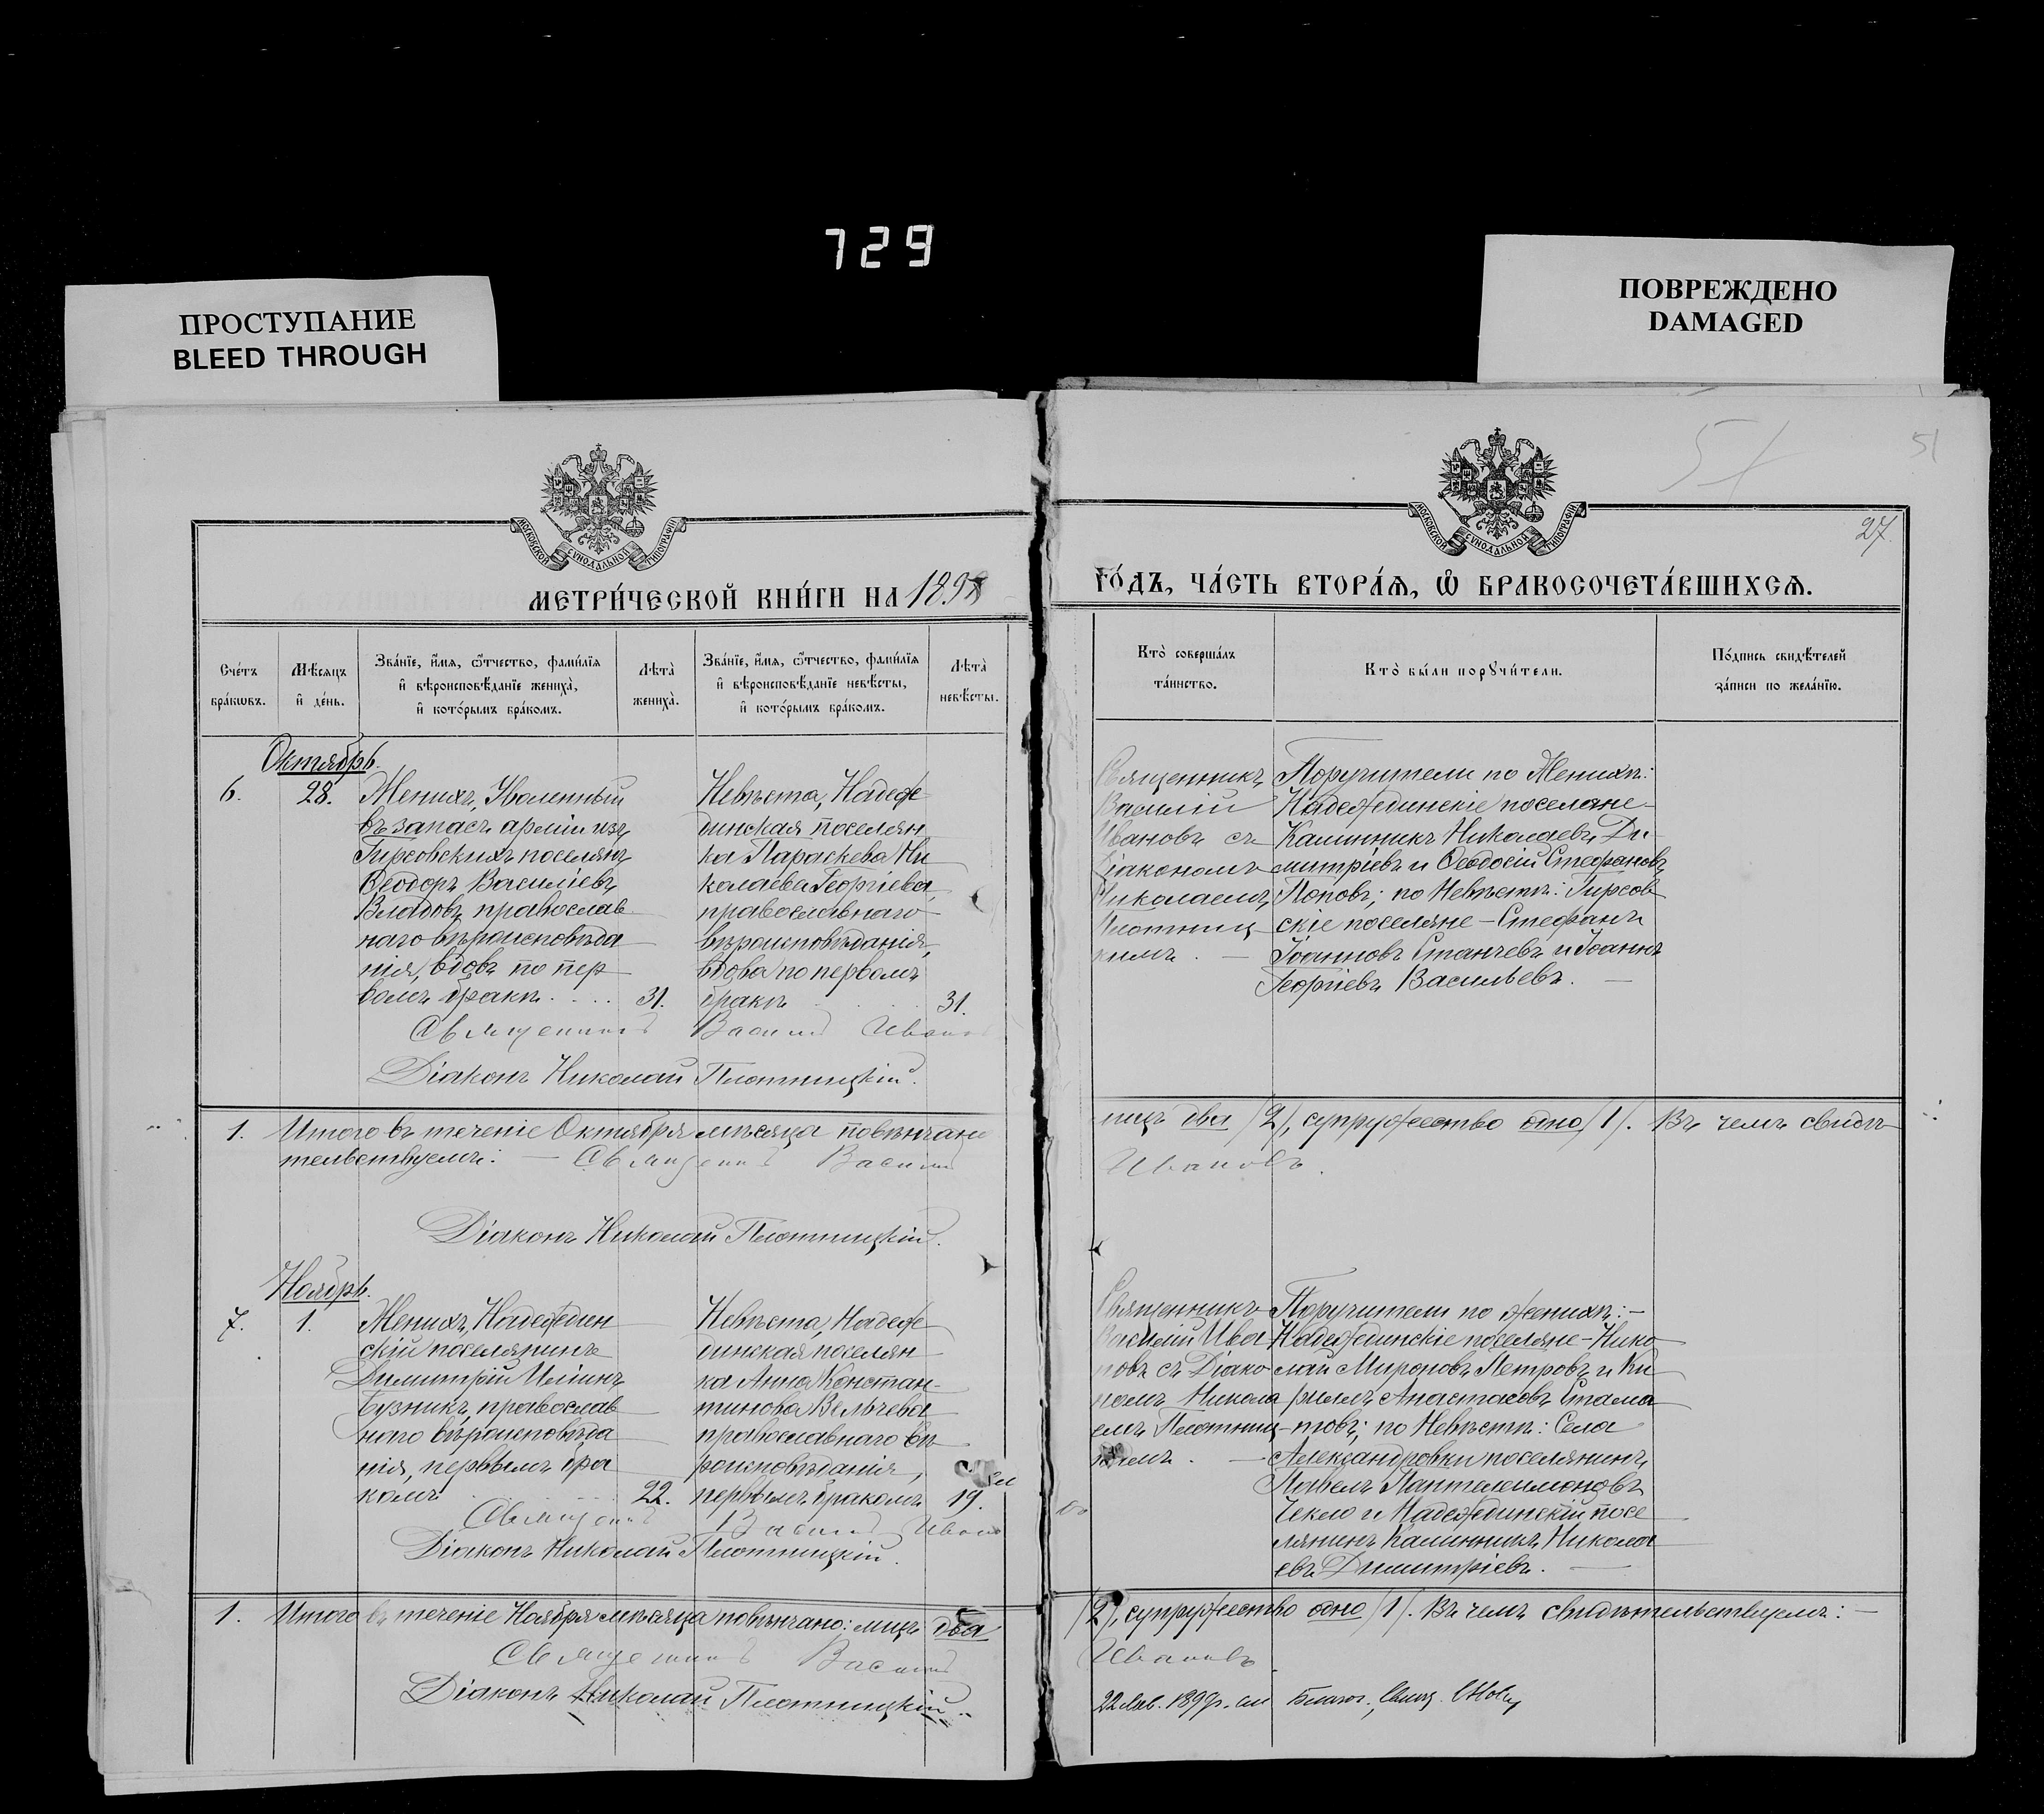 729
ПРОСТУПАНИЕ
BLEED THROUGH
ПОВРЕЖДЕНО
DAMAGED
51
51
27.
МОСКОВСКОЙ СѴНОДАЛЬНОЙ ТИПОГРАФІИ
МОСКОВСКОЙ СѴНОДАЛЬНОЙ ТИПОГРАФІИ
МЕТРИ́ЧЕСКОЙ КНИ́ГИ НА 1898
ГО́ДЪ, ЧА́СТЬ ВТОРА́Я, Ѽ БРАКОСОЧЕТА́ВШИХСѦ.
Сче́тъ
бра́кѡвъ.
Мѣ́сяцъ
и҆ де́нь.
Зва́нїе, и҆́мя, ѻ҆́тчество, фами́лїя
и҆ вѣроисповѣ́данїе жениха̀,
и҆ кото́рымъ бра́комъ.
Лѣта̀
жениха̀.
Зва́нїе, и҆́мя, ѻ҆́тчество, фами́лїя
и҆ вѣроисповѣ́данїе невѣ́сты,
и҆ кото́рымъ бра́комъ.
Лѣта̀
невѣ́сты.
Кто̀ соверша́лъ
та́инство.
Кто̀ бы́ли порꙋчи́тели.
По́дпись свидѣ́телей
за́писи по жела́нїю.
Октябрь.
6.
28.
Женихъ, Уволенный
въ запасъ арміи изъ
Гирсовскихъ поселянъ
Ѳеодоръ Василіевъ
Владовъ, православ
наго вѣроисповѣда
нія, вдовъ по пер
вомъ бракѣ. . . .
31.
Невѣста, Надеж
динская поселян
ка Параскева Ни
колаева Георгіева,
православнаго
вѣроисповѣданія,
вдова по первомъ
бракѣ
31.
Священникъ
Василій
Ивановъ съ
Діакономъ
Николаемъ
Плотниц
кимъ. —
Поручители по Женихѣ:
Надеждинскіе поселяне
Калинникъ Николаевъ Ди
митріевъ и Ѳеодосій Стефановъ
Поповъ; по Невѣстѣ: Гирсов
скіе поселяне — Стефанъ
Іоанновъ Станчевъ и Іоаннъ
Георгіевъ Васильевъ. —
Священникъ Василий Иванов
Діаконъ Николай Плотницкій.
1. Итого въ теченіе Октября мѣсяца повѣнчано
лицъ два /2/, супружество одно /1/. Въ чемъ свидѣ
тельствуемъ: — Священникъ Василий
Ивановъ.
Діаконъ Николай Плотницкій.
Ноябрь.
7.
1.
Женихъ, Надеждин
скій поселянинъ
Димитрій Иліинъ
Бузникъ, православ
наго вѣроисповѣда
нія, первымъ бра
комъ
22.
Невѣста, Надеж
динская поселян
ка Анна Констан
тинова Вельчева
православнаго вѣ
роисповѣданія,
первымъ бракомъ
19.
Священникъ
Василій Ива
новъ съ Діако
номъ Никола
емъ Плотниц
кимъ. —
Поручители по женихѣ: —
Надеждинскіе поселяне — Нико
лай Мироновъ Петровъ и Ки
риллъ Анастасовъ Стама
товъ; по Невѣстѣ: Села
Александровки поселянинъ
Павелъ Пантелеимоновъ
Чекло и Надеждинскій посе
лянинъ Калинникъ Никола
евъ Димитріевъ. —
Священникъ Василий Иванов
Діаконъ Николай Плотницкій.
1. Итого въ теченіе Ноября мѣсяца повѣнчано: лицъ два
/2/, супружество одно /1/. Въ чемъ свидѣтельствуемъ: —
Священникъ Василий
Ивановъ
Діаконъ Николай Плотницкій.
22 Янв. 1899 г. Благоч., Свящ.